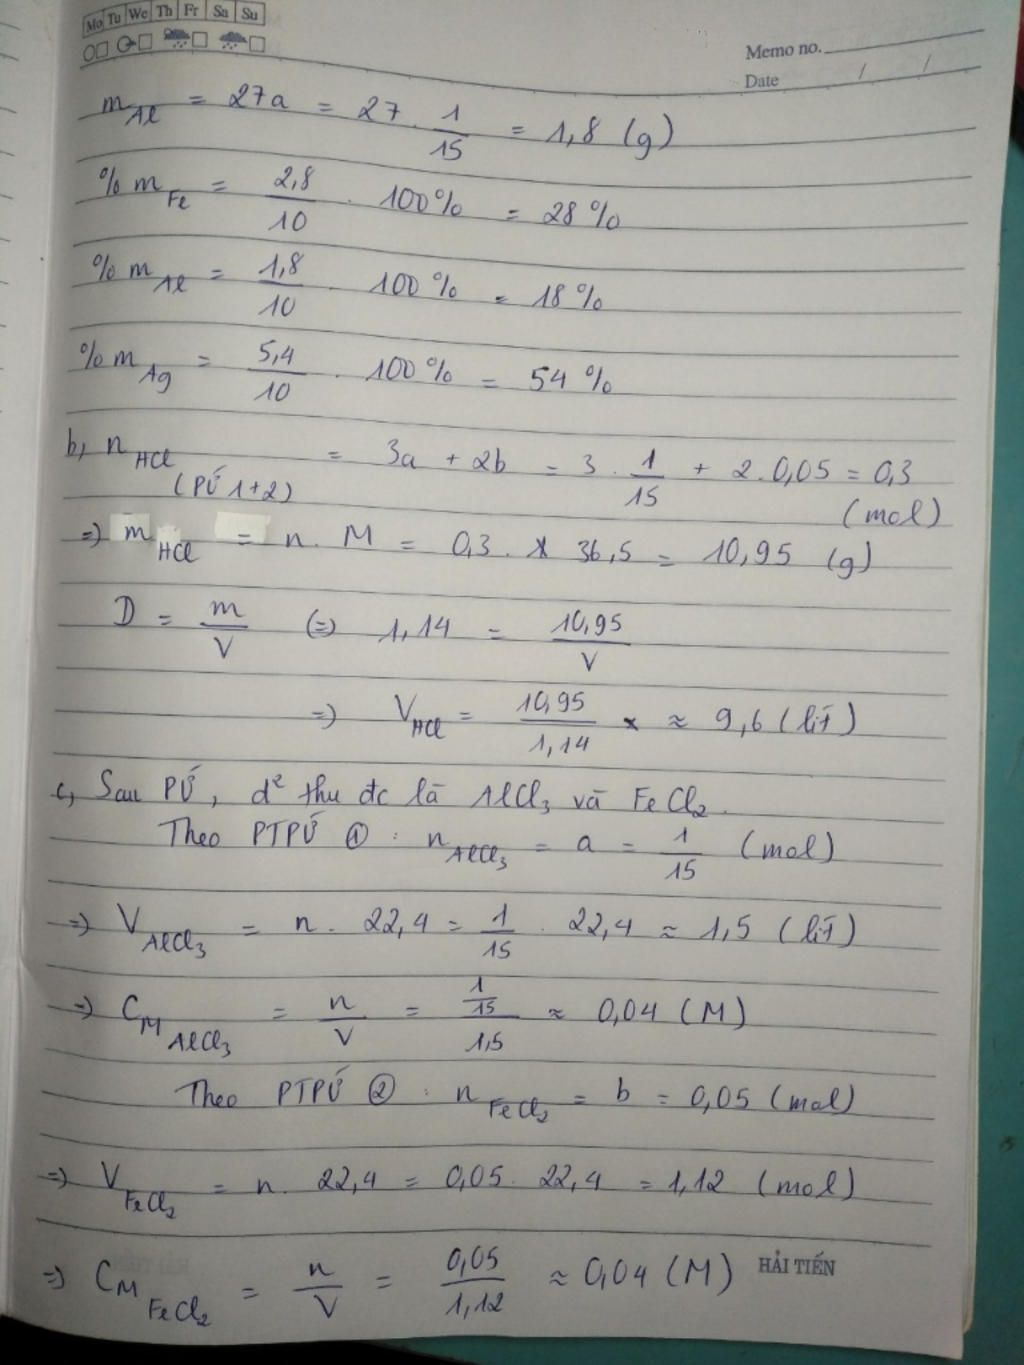 Mo Tu We Th Fr Sa Su
Memo no.
Date / /
m Al = 27a = 27 . 1/15 = 1,8 (g)
% m Fe = 2,8/10 . 100% = 28%
% m Al = 1,8/10 . 100% = 18%
% m Ag = 5,4/10 . 100% = 54%
b, n HCl (PỨ 1+2) = 3a + 2b = 3 . 1/15 + 2.0,05 = 0,3 (mol)
=) m HCl = n . M = 0,3 . 36,5 = 10,95 (g)
D = m/V (=) 1,14 = 10,95/V
=) V HCl = 10,95/1,14 ≈ 9,6 (lít)
c, Sau PỨ, d² thu đc là AlCl3 và FeCl2.
Theo PTPỨ ① : n AlCl3 = a = 1/15 (mol)
=) V AlCl3 = n . 22,4 = 1/15 . 22,4 ≈ 1,5 (lít)
=) CM AlCl3 = n/V = 1/15/1,5 ≈ 0,04 (M)
Theo PTPỨ ② : n FeCl2 = b = 0,05 (mol)
=) V FeCl2 = n . 22,4 = 0,05 . 22,4 = 1,12 (mol)
=) CM FeCl2 = n/V = 0,05/1,12 ≈ 0,04 (M)
HẢI TIẾN